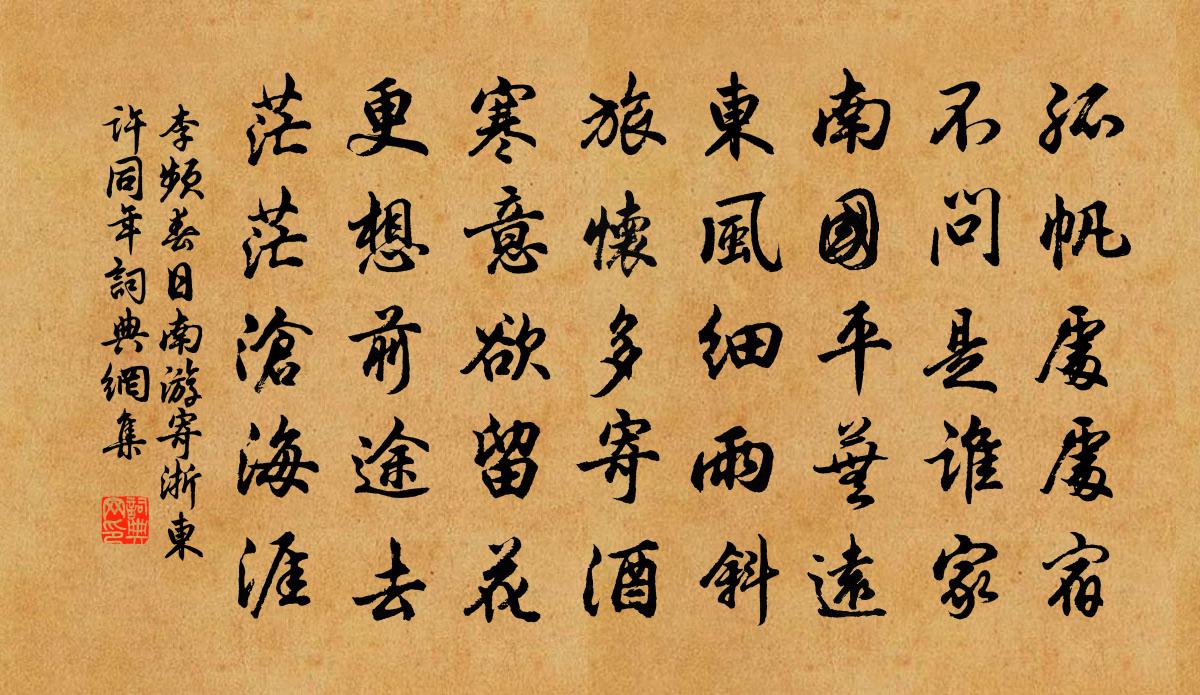 孤帆處處宿
不問是誰家
南國平蕪遠
東風細雨斜
旅懷多寄酒
寒意欲留花
更想前途去
茫茫滄海涯
李頻春日南游寄浙東
許同年詞典網集
詞典
网印